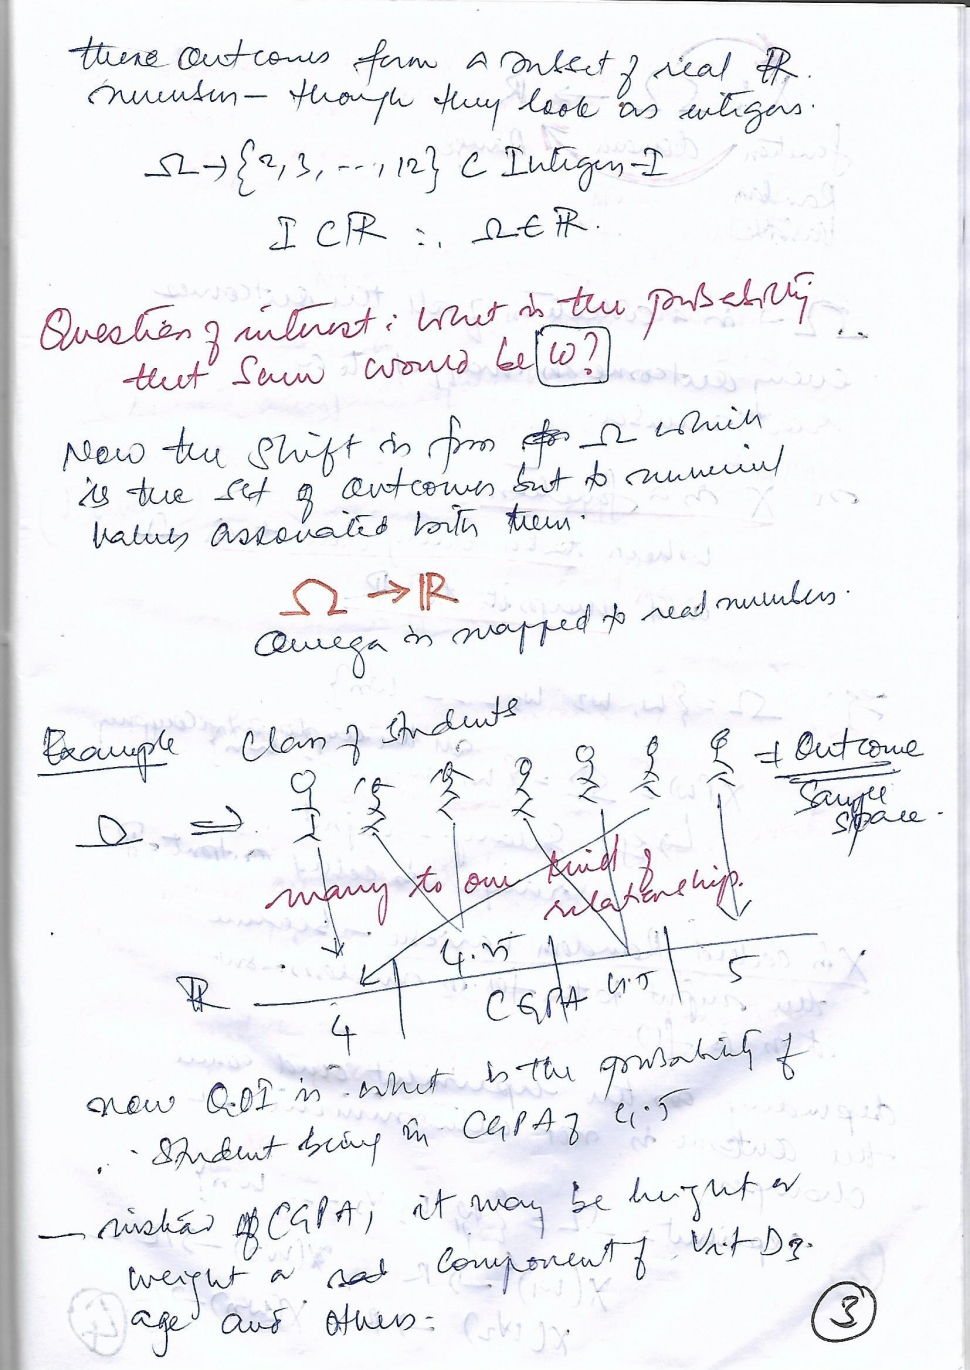 these outcomes form a subset of real ℝ.
numbers – though they look as intigers.
Ω→{2,3,--,12} ⊂ Intigers-I
I ⊂ ℝ ∴ Ω ∈ ℝ.
Question of interest: what is the probability
that Sum would be 10?
Now the shift is from Ω which
is the set of outcomes but to numerical
values associated with them.
Ω → ℝ
Omega is mapped to real numbers.
Example Class of Students
Ω ⇒ → Outcome
Sample
space.
many to one kind of
relationship.
ℝ 4 4.25 CGPA 4.5 5
now QOI is what is the probability of
Student being in CGPA of 4.5
— instead of CGPA, it may be height or
weight or component of Vit D3.
age and others:
3